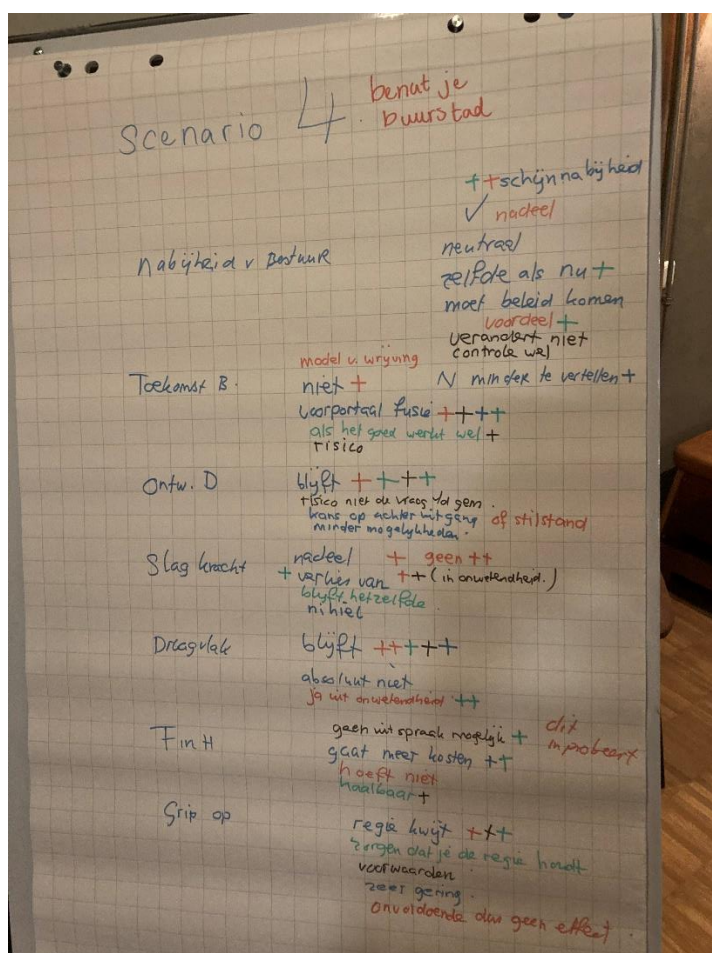 Scenario 4. benut je
buurstad
++ schijn nabijheid
✓ nadeel
Nabijheid v Bestuur
neutraal
zelfde als nu +
moet beleid komen
voordeel +
verandert niet
controle wel
N minder te vertellen +
Toekomst B.
model v. wrijving
niet +
voorportaal fusie ++++
als het goed werkt wel +
risico
Ontw. D
blijft ++++
risico niet de vraag gem.
kans op achteruitgang of stilstand
minder mogelijkheden.
Slag kracht
nadeel + geen ++
+ verlies van ++ (in onwetendheid.)
blijft hetzelfde
nihiel
Draagvlak
blijft +++++
absoluut niet
ja uit onwetendheid ++
Fin H
geen uitspraak mogelijk +
dit
gaat meer kosten ++
hoeft niet
haalbaar +
Grip op
regie kwijt +++
zorgen dat je de regie houdt
voorwaarden
zeer gering.
onvoldoende dus geen effect.